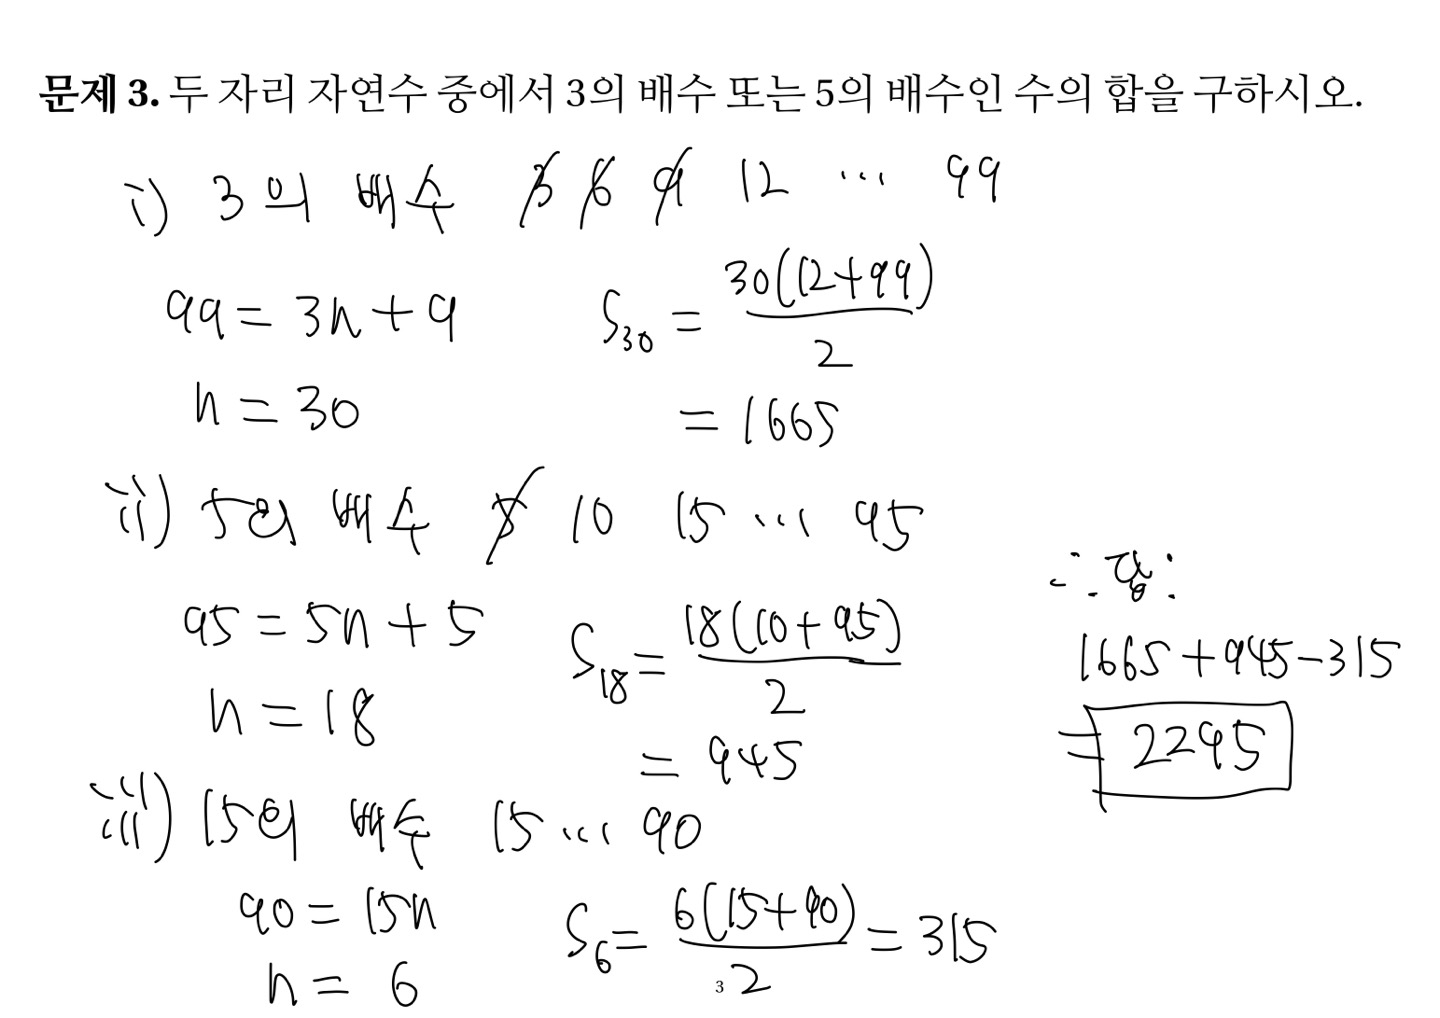 문제 3. 두 자리 자연수 중에서 3의 배수 또는 5의 배수인 수의 합을 구하시오.
i) 3의 배수 3 6 9 12 ... 99
99 = 3n + 9
n = 30
S30 = 30(12+99) / 2
= 1665
ii) 5의 배수 5 10 15 ... 95
95 = 5n + 5
n = 18
S18 = 18(10+95) / 2
= 945
iii) 15의 배수 15 ... 90
90 = 15n
n = 6
S6 = 6(15+90) / 2 = 315
∴ 답:
1665 + 945 - 315
= 2295
3